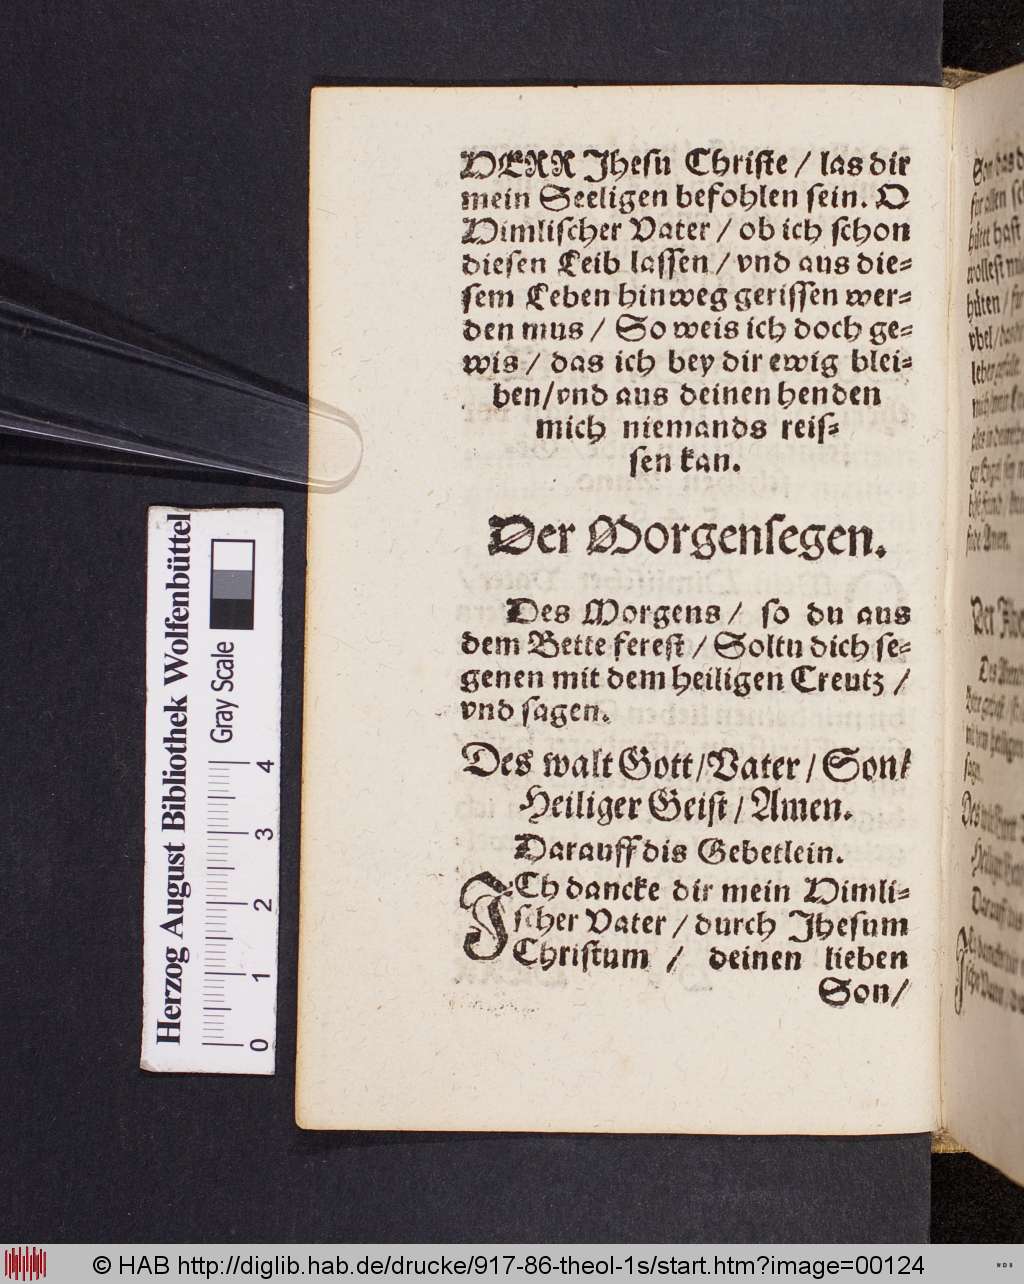 HERR Jhesu Christe / las dir
mein Seeligen befohlen sein. O
Himlischer Vater / ob ich schon
diesen Leib lassen / vnd aus die-
sem Leben hinweg gerissen wer-
den mus / So weis ich doch ge-
wis / das ich bey dir ewig blei-
ben/vnd aus deinen henden
mich niemands reis-
sen kan.
Der Morgensegen.
Des Morgens / so du aus
dem Bette ferest / Soltu dich se-
genen mit dem heiligen Creutz /
vnd sagen.
Des walt Gott/Vater / Son/
Heiliger Geist / Amen.
Darauff dis Gebetlein.
JCh dancke dir mein Himli-
scher Vater / durch Jhesum
Christum / deinen lieben
Son/
Herzog August Bibliothek Wolfenbüttel
Gray Scale
0 1 2 3 4
© HAB http://diglib.hab.de/drucke/917-86-theol-1s/start.htm?image=00124